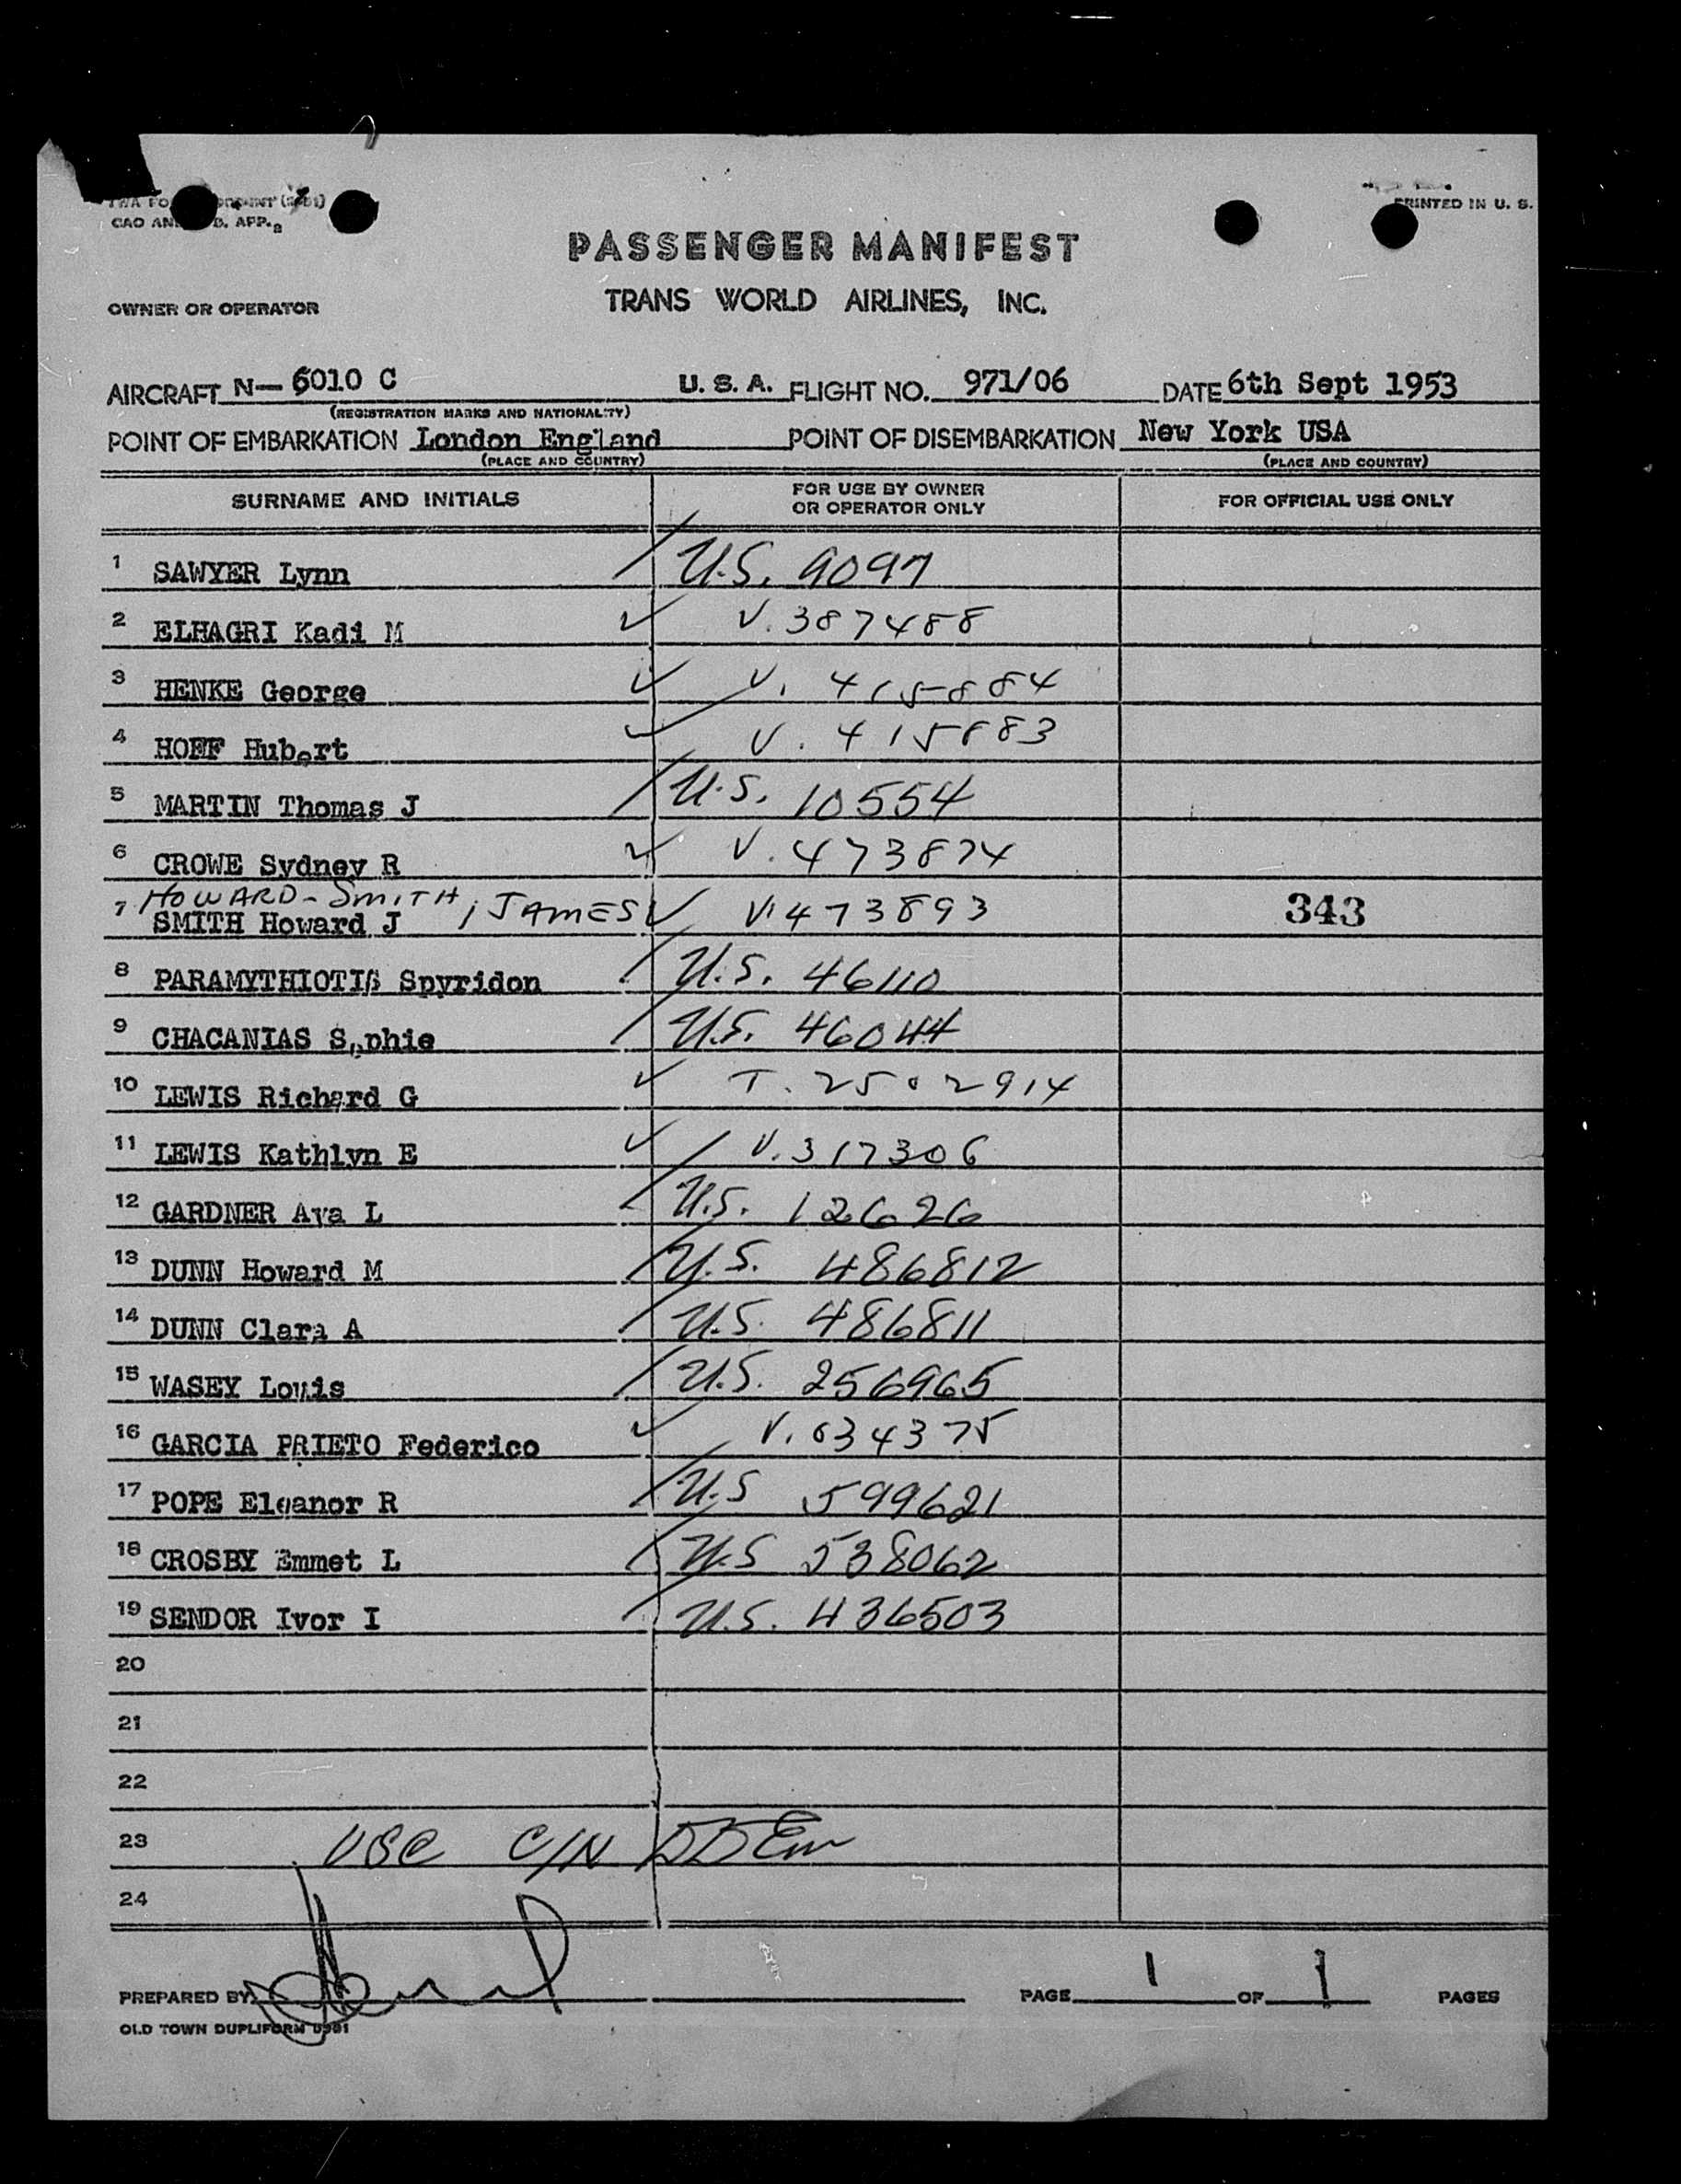 CAO AN D. APP.
PRINTED IN U. S.
PASSENGER MANIFEST
OWNER OR OPERATOR
TRANS WORLD AIRLINES, INC.
AIRCRAFT N— 6010 C U. S. A. FLIGHT NO. 971/06 DATE 6th Sept 1953
(REGISTRATION MARKS AND NATIONALITY)
POINT OF EMBARKATION London England POINT OF DISEMBARKATION New York USA
(PLACE AND COUNTRY) (PLACE AND COUNTRY)
SURNAME AND INITIALS FOR USE BY OWNER OR OPERATOR ONLY FOR OFFICIAL USE ONLY
1 SAWYER Lynn U.S. 9097
2 ELHAGRI Kadi M V. 387488
3 HENKE George V. 415884
4 HOFF Hubert V. 415883
5 MARTIN Thomas J U.S. 10554
6 CROWE Sydney R V. 473874
HOWARD-SMITH, JAMES
7 SMITH Howard J V. 473893 343
8 PARAMYTHIOTIS Spyridon U.S. 46110
9 CHACANIAS Sophie U.S. 46044
10 LEWIS Richard G T. 2502914
11 LEWIS Kathlyn E V. 317306
12 GARDNER Ava L U.S. 12626
13 DUNN Howard M U.S. 486812
14 DUNN Clara A U.S. 486811
15 WASEY Louis U.S. 256965
16 GARCIA PRIETO Federico V. 034375
17 POPE Eleanor R U.S 599621
18 CROSBY Emmet L U.S 538062
19 SENDOR Ivor I U.S. 436503
20
21
22
23 USC C/N
24
PREPARED BY PAGE 1 OF 1 PAGES
OLD TOWN DUPLIFORM